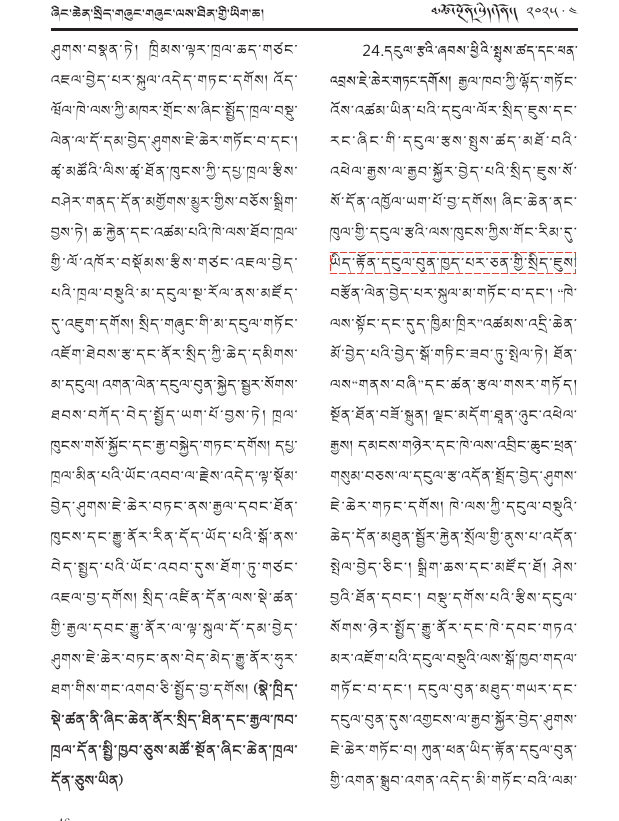 ཞིང་ཆེན་སྲིད་གཞུང་གཞུང་ལས་ཐིན་གྱི་ཡིག་ཆ།
༢༠༢༥ · ༤
ཤུགས་བསྣན་ཏེ། ཁྲིམས་ལྟར་ཁྲལ་ཆད་གཙང་
འཇལ་བྱེད་པར་སྐུལ་འདེད་གཏང་དགོས། འོད་
ཝོལ་ཁེ་ལས་ཀྱི་མཁར་གྲོང་ས་ཞིང་སྤྱོད་ཁྲལ་བསྡུ་
ལེན་ལ་དོ་དམ་བྱེད་ཤུགས་ཇེ་ཆེར་གཏོང་བ་དང་།
ཚྭ་མཚོའི་ལིས་ཚྭ་ཐོན་ཁུངས་ཀྱི་དཔྱ་ཁྲལ་རྩིས་
བཤེར་གནད་དོན་མགྱོགས་མྱུར་གྱིས་བཅོས་སྒྲིག་
བྱས་ཏེ། ཆ་རྐྱེན་དང་འཚམ་པའི་ཁེ་ལས་ཐོབ་ཁྲལ་
གྱི་ལོ་འཁོར་བསྡོམས་རྩིས་གཙང་འཇལ་བྱེད་
པའི་ཁྲལ་བསྡུའི་མ་དངུལ་སྔ་རོལ་ནས་མཛོད་
དུ་འཇུག་དགོས། སྲིད་གཞུང་གི་མ་དངུལ་གཏོང་
འཇོག་ཐེབས་རྩ་དང་ནོར་སྲིད་ཀྱི་ཆེད་དམིགས་
མ་དངུལ། འགན་ལེན་དངུལ་བུན་སྐྱེད་སྦྱར་སོགས་
ཐབས་བཀོད་བེད་སྤྱོད་ཡག་པོ་བྱས་ཏེ། ཁྲལ་
ཁུངས་གསོ་སྐྱོང་དང་རྒྱ་བསྐྱེད་གཏང་དགོས། དཔྱ་
ཁྲལ་མིན་པའི་ཡོང་འབབ་ལ་རྗེས་འདེད་ལྟ་སྡོམ་
བྱེད་ཤུགས་ཇེ་ཆེར་བཏང་ནས་རྒྱལ་དབང་ཐོན་
ཁུངས་དང་རྒྱུ་ནོར་རིན་དོད་ཡོད་པའི་སྒོ་ནས་
བེད་སྤྱད་པའི་ཡོང་འབབ་དུས་ཐོག་ཏུ་གཙང་
འཇལ་བྱ་དགོས། སྲིད་འཛིན་དོན་ལས་སྡེ་ཚན་
གྱི་རྒྱལ་དབང་རྒྱུ་ནོར་ལ་ལྟ་སྐུལ་དོ་དམ་བྱེད་
ཤུགས་ཇེ་ཆེར་བཏང་ནས་བེད་མེད་རྒྱུ་ནོར་ཧུར་
ཐག་གིས་གང་འགབ་ཅི་སྤྱོད་བྱ་དགོས། (སྣེ་ཁྲིད་
སྡེ་ཚན་ནི་ཞིང་ཆེན་ནོར་སྲིད་ཐིན་དང་རྒྱལ་ཁབ་
ཁྲལ་དོན་སྤྱི་ཁྱབ་ཅུས་མཚོ་སྔོན་ཞིང་ཆེན་ཁྲལ་
དོན་ཅུས་ཡིན)
24.དངུལ་རྩའི་ཞབས་ཕྱིའི་སྤུས་ཚད་དང་ཕན་
འབྲས་ཇེ་ཆེར་གཏང་དགོས། རྒྱལ་ཁབ་ཀྱི་ལྷོད་གཏོང་
འོས་འཚམ་ཡིན་པའི་དངུལ་ལོར་སྲིད་ཇུས་དང་
རང་ཞིང་གི་དངུལ་རྩས་སྤུས་ཚད་མཐོ་བའི་
འཕེལ་རྒྱས་ལ་རྒྱབ་སྐྱོར་བྱེད་པའི་སྲིད་ཇུས་སོ་
སོ་དོན་འཁྱོལ་ཡག་པོ་བྱ་དགོས། ཞིང་ཆེན་ནང་
ཁུལ་གྱི་དངུལ་རྩའི་ལས་ཁུངས་ཀྱིས་གོང་རིམ་དུ་
ཡིད་རྟོན་དངུལ་བུན་ཁྱད་པར་ཅན་གྱི་སྲིད་ཇུས་
བརྩོན་ལེན་བྱེད་པར་སྐུལ་མ་གཏོང་བ་དང་། “ཁེ་
ལས་སྟོང་དང་དུད་ཁྱིམ་ཁྲིར”འཚམས་འདྲི་ཆེན་
མོ་བྱེད་པའི་བྱེད་སྒོ་གཏིང་ཟབ་ཏུ་སྤེལ་ཏེ། ཐོན་
ལས“གནས་བཞི”དང་ཚན་རྩལ་གསར་གཏོད།
སྔོན་ཐོན་བཟོ་སྐྲུན། ལྗང་མདོག་ཐྲན་ཉུང་འཕེལ་
རྒྱས། དམངས་གཉེར་དང་ཁེ་ལས་འབྲིང་ཆུང་ཕྲན་
གསུམ་བཅས་ལ་དངུལ་རྩ་འདོན་སྤྲོད་བྱེད་ཤུགས་
ཇེ་ཆེར་གཏང་དགོས། ཁེ་ལས་ཀྱི་དངུལ་བསྡུའི་
ཆེད་དོན་མཐུན་སྦྱོར་རྐྱེན་སྲོལ་གྱི་ནུས་པ་འདོན་
སྤེལ་བྱེད་ཅིང་། སྒྲིག་ཆས་དང་མཛོད་ཐོ། ཤེས་
བྱའི་ཐོན་དབང་། བསྡུ་དགོས་པའི་རྩིས་དངུལ་
སོགས་ཉེར་སྤྱོད་རྒྱུ་ནོར་དང་ཁེ་དབང་གཏའ་
མར་འཇོག་པའི་དངུལ་བསྡུའི་ལས་སྒོ་ཁྱབ་གདལ་
གཏོང་བ་དང་། དངུལ་བུན་མཐུད་གཡར་དང་
དངུལ་བུན་དུས་འགྱངས་ལ་རྒྱབ་སྐྱོར་བྱེད་ཤུགས་
ཇེ་ཆེར་གཏོང་བ། ཀུན་ཕན་ཡིད་རྟོན་དངུལ་བུན་
གྱི་འགན་སྒྲུབ་འགན་འདེད་མི་གཏོང་བའི་ལམ་